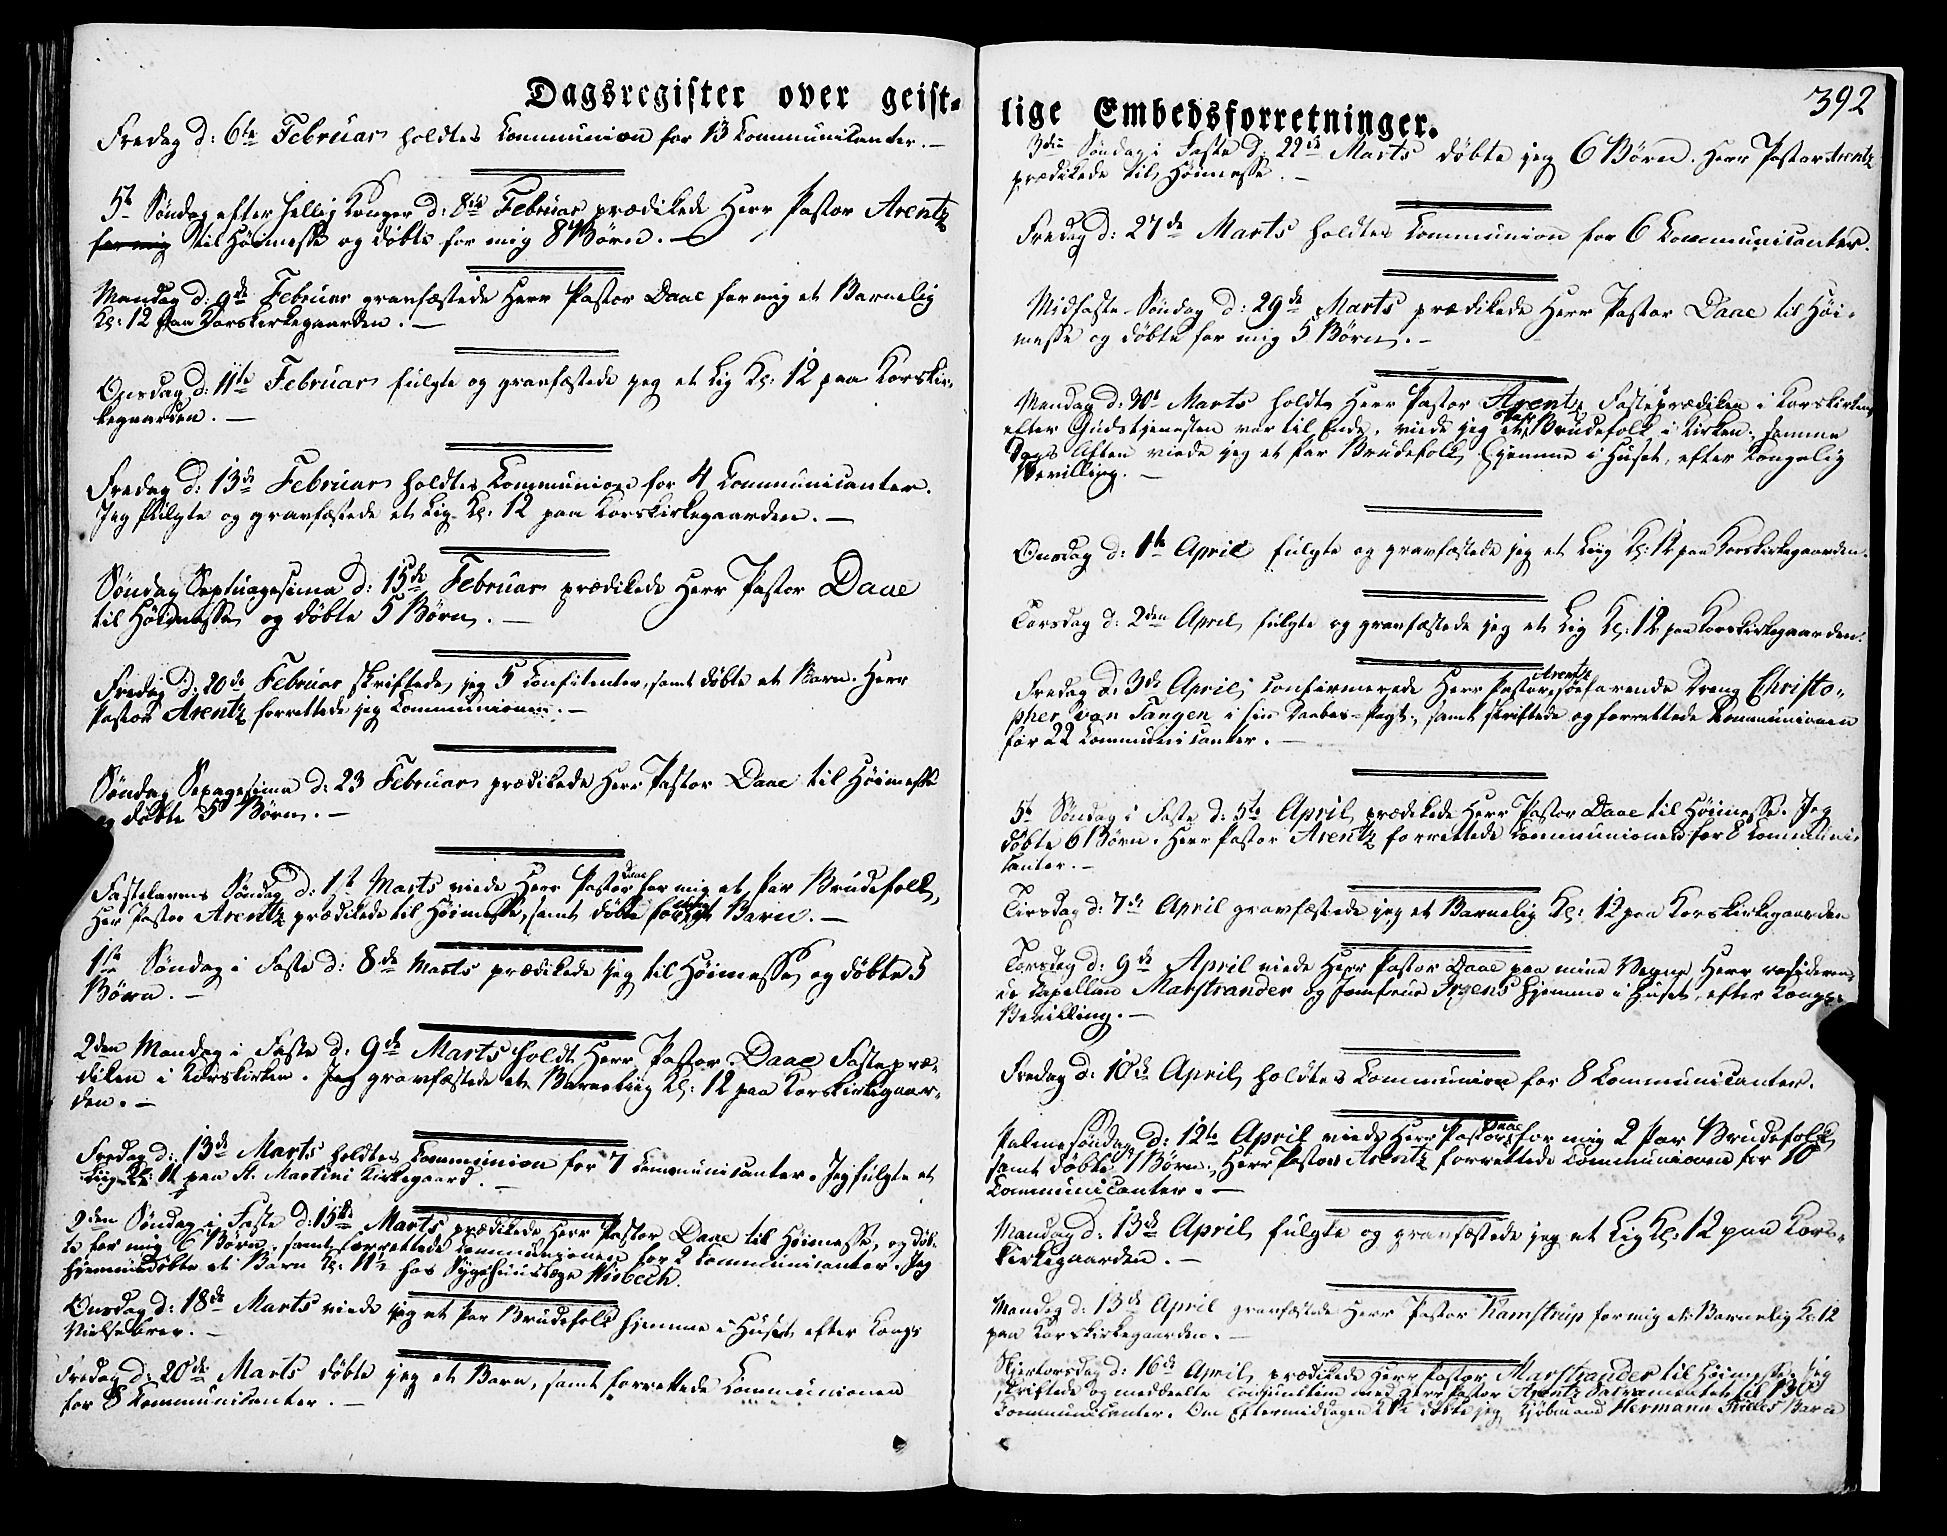 Dagsregister over geist-
Fredag d: 6te Februar holdtes Communion for 13 Communicanter. —
5te Søndag efter hellig Konger d: 8de Februar prædikede Herr Pastor Arentz
for mig til Høimesse og døbte for mig 8 Børn. —
Mandag d: 9de Februar gravfæstede Herr Pastor Daae for mig et Barnelig
Kl: 12 paa Korskirkegaarden. —
Onsdag d: 11te Februar fulgte og gravfæstede jeg et Lig Kl: 12 paa Korskir-
kegaarden. —
Fredag d: 13de Februar holdtes Communion for 4 Communicanter.
Jeg fulgte og gravfæstede et Lig Kl: 12 paa Korskirkegaarden. —
Søndag Septuagesima d: 15de Februar prædikede Herr Pastor Daae
til Høimesse og døbte 5 Børn. —
Fredag d: 20de Februar skriftede jeg 5 Confitenter, samt døbte et Barn. Herr
Pastor Arentz forrettede jeg Communionen. —
Søndag Sexagesima d: 23 Februar prædikede Herr Pastor Daae til Høimesse
og døbte 5 Børn. —
Fastelavens Søndag d: 1te Marts viede Herr Pastor Daae for mig et Par Brudefolk,
Her Pastor Arentz prædikede til Høimesse, samt døbte Barn. —
1ste Søndag i Faste d: 8de Marts prædikede jeg til Høimesse og døbte 5
Børn. —
2den Mandag i Faste d: 9de Marts holdt Herr Pastor Daae Fastepræ-
diken i Korskirken. Jeg gravfæstede et Barneliig Kl: 12 paa Korskirkegaar-
den. —
Fredag d: 13de Marts holdtes Communion for 7 Communicanter. Jeg fulgte et
Liig Kl: 12 paa St. Martini Kirkegaard.
2den Søndag i Faste d: 15de Marts prædikede Herr Pastor Daae til Høimesse, og døb-
te for mig 6 Børn, samt forrettede Communionen for 2 Communicanter. Jeg
hjemmedøbte et Barn Kl: hos Sygehuuslæge Wisbech.
Onsdag d: 18de Marts viede jeg et Par Brudefolk hjemme i Huset efter Kongs
Vielsebrev. —
Fredag d: 20de Marts døbte jeg et Barn, samt forrettede Communionen
for 8 Communicanter. —
lige Embedsforretninger.
392
3die Søndag i Faste d: 22de Marts døbte jeg 6 Børn. Herr Pastor Arentz
prædikede til Høimesse. —
Fredag d: 27de Marts holdtes Communion for 6 Communicanter.
Midfaste-Søndag d: 29de Marts prædikede Herr Pastor Daae til Høi-
messe og døbte for mig 5 Børn. —
Mandag d: 30te Marts holdte Herr Pastor Arentz Fasteprædiken i Korskirken,
efter Gudstjenesten var til Ende, viede jeg et Par Brudefolk i Kirken; samme
Dags Aften viede jeg et Par Brudefolk hjemme i Huset, efter Kongelig
Bevilling. —
Onsdag d: 1te April fulgte og gravfæstede jeg et Liig Kl: 12 paa Korskirkegaarden.
Torsdag d: 2den April fulgte og gravfæstede jeg et Lig Kl: 12 paa Korskirkegaarden.
Fredag d: 3de April confirmerede Herr Pastor Arentz søefarende Dreng Christo-
pher von Tangen i sin Daabes-Pagt, samt skriftede og forrettede Communionen
for 22 Communicanter. —
5te Søndag i Faste d: 5te April prædikede Herr Pastor Daae til Høimesse. Jeg
døbte 6 Børn. Herr Pastor Arentz forrettede Communionen for 8 Communi-
canter. —
Tirsdag d: 7de April gravfæstede jeg et Barnelig Kl: 12 paa Korskirkegaarden
Torsdag d: 9de April viede Herr Pastor Daae paa mine Vegne Herr resideren-
de Capellan Marstrander og Jomfrue Irgens hjemme i Huset, efter Kongs-
Bevilling. —
Fredag d: 10de April holdtes Communion for 8 Communicanter.
Palmesøndag d: 12te April viede Herr Pastor Daae for mig 2 Par Brudefolk
samt døbte 7 Børn. Herr Pastor Arentz forrettede Communionen for 10
Communicanter. —
Mandag d: 13de April fulgte og gravfæstede jeg et Lig Kl: 12 paa Kors-
kirkegaarden. —
Mandag d: 13de April gravfæstede Herr Pastor Kamstrup for mig et Barnelig Kl: 12
paa Korskirkegaarden. —
Skjertorsdag d: 16de April prædikede Herr Pastor Marstrander til Høimesse. Jeg
skriftede og meddeelte Conjunctim med Herr Pastor Arentz Sacramentet til 130
Communicanter. Om Eftermiddagen døbte jeg Kjøbmand Hermann Barn